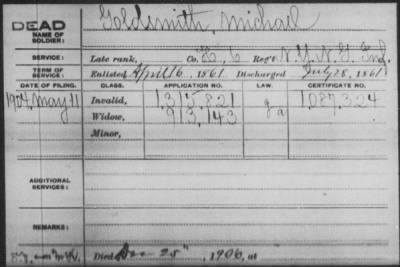 DEAD
NAME OF SOLDIER: Goldsmith, Michael
SERVICE: Late rank, Co. 6 Reg't N.Y.N.G. Inf.
TERM OF SERVICE: Enlisted April 16, 1861 Discharged July 28, 1861
DATE OF FILING. CLASS. APPLICATION NO. LAW. CERTIFICATE NO.
1904, May 11 Invalid, 1,315,821 1,087,324
Widow, 913,143
Minor,
ADDITIONAL SERVICES:
REMARKS:
Died Dec 25", 1906, at